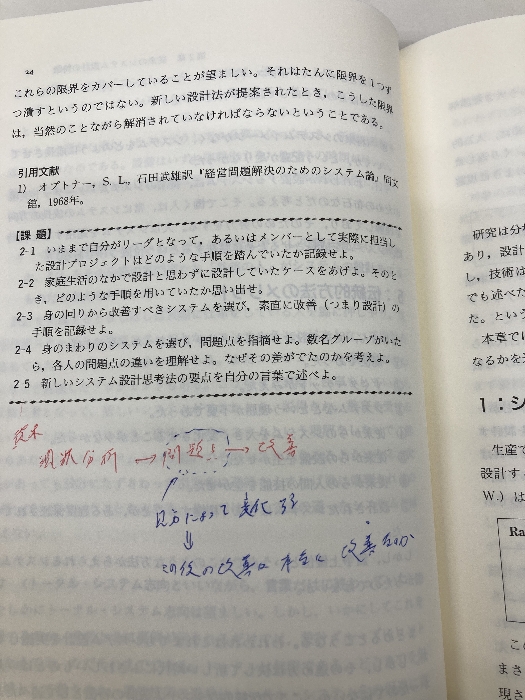 24
これらの限界をカバーしていることが望ましい。それはたんに限界を1つず
つ潰すというのではない。新しい設計法が提案されたとき，こうした限界
は，当然のことながら解消されていなければならないということである。
引用文献
1) オプトナー，S. L.，石田武雄訳『経営問題解決のためのシステム論』同文
館，1968年。
【課 題】
2-1 いままで自分がリーダとなって，あるいはメンバーとして実際に担当し
た設計プロジェクトはどのような手順を踏んでいたか記録せよ。
2-2 家庭生活のなかで設計と思わずに設計していたケースをあげよ。そのと
き，どのような手順を用いていたか思い出せ。
2-3 身の回りから改善すべきシステムを選び，素直に改善（つまり設計）の
手順を記録せよ。
2-4 身のまわりのシステムを選び，問題点を指摘せよ。数名グループがいた
ら，各人の問題点の違いを理解せよ。なぜその差がでたのかを考えよ。
2 5 新しいシステム設計思考法の要点を自分の言葉で述べよ。
従来
現状分析 → 問題点 → 改善
見方によって変化する
⇓
この後の改善は本当に改善なのか
研究は分
あり，設計
し，技術は
でも述べた
た。という
本章では
なるかを
1：シ
生産で
設計す
W.）は
Ra
この
まさ
現さ